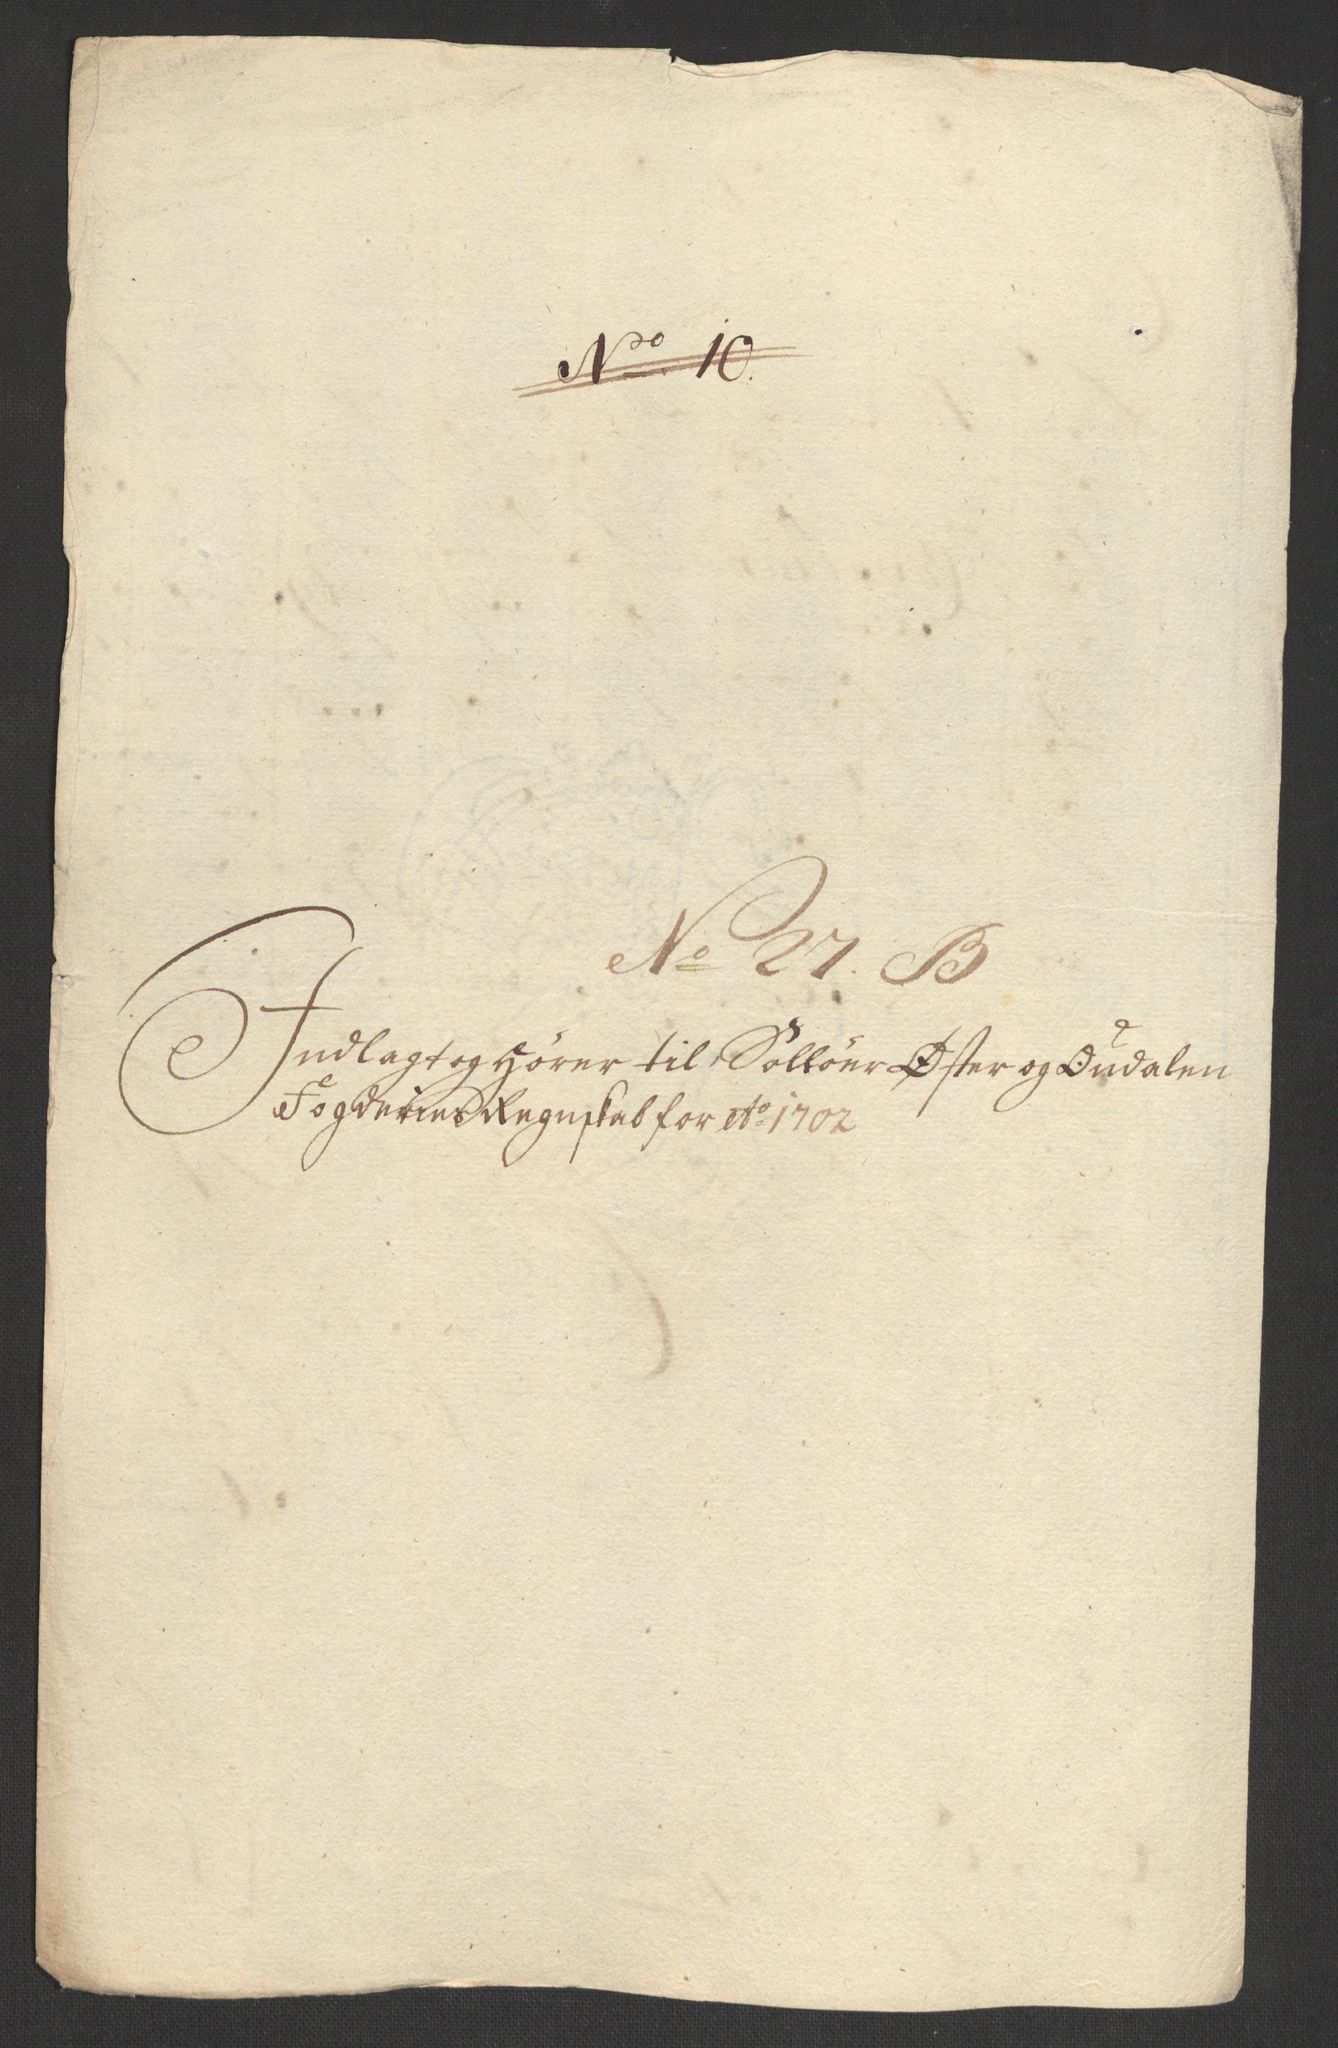 No 10.
No 27. B
Indlagt og hører til Solløer Øster og Oudalen
Fogderies Regnskab for Ao 1702